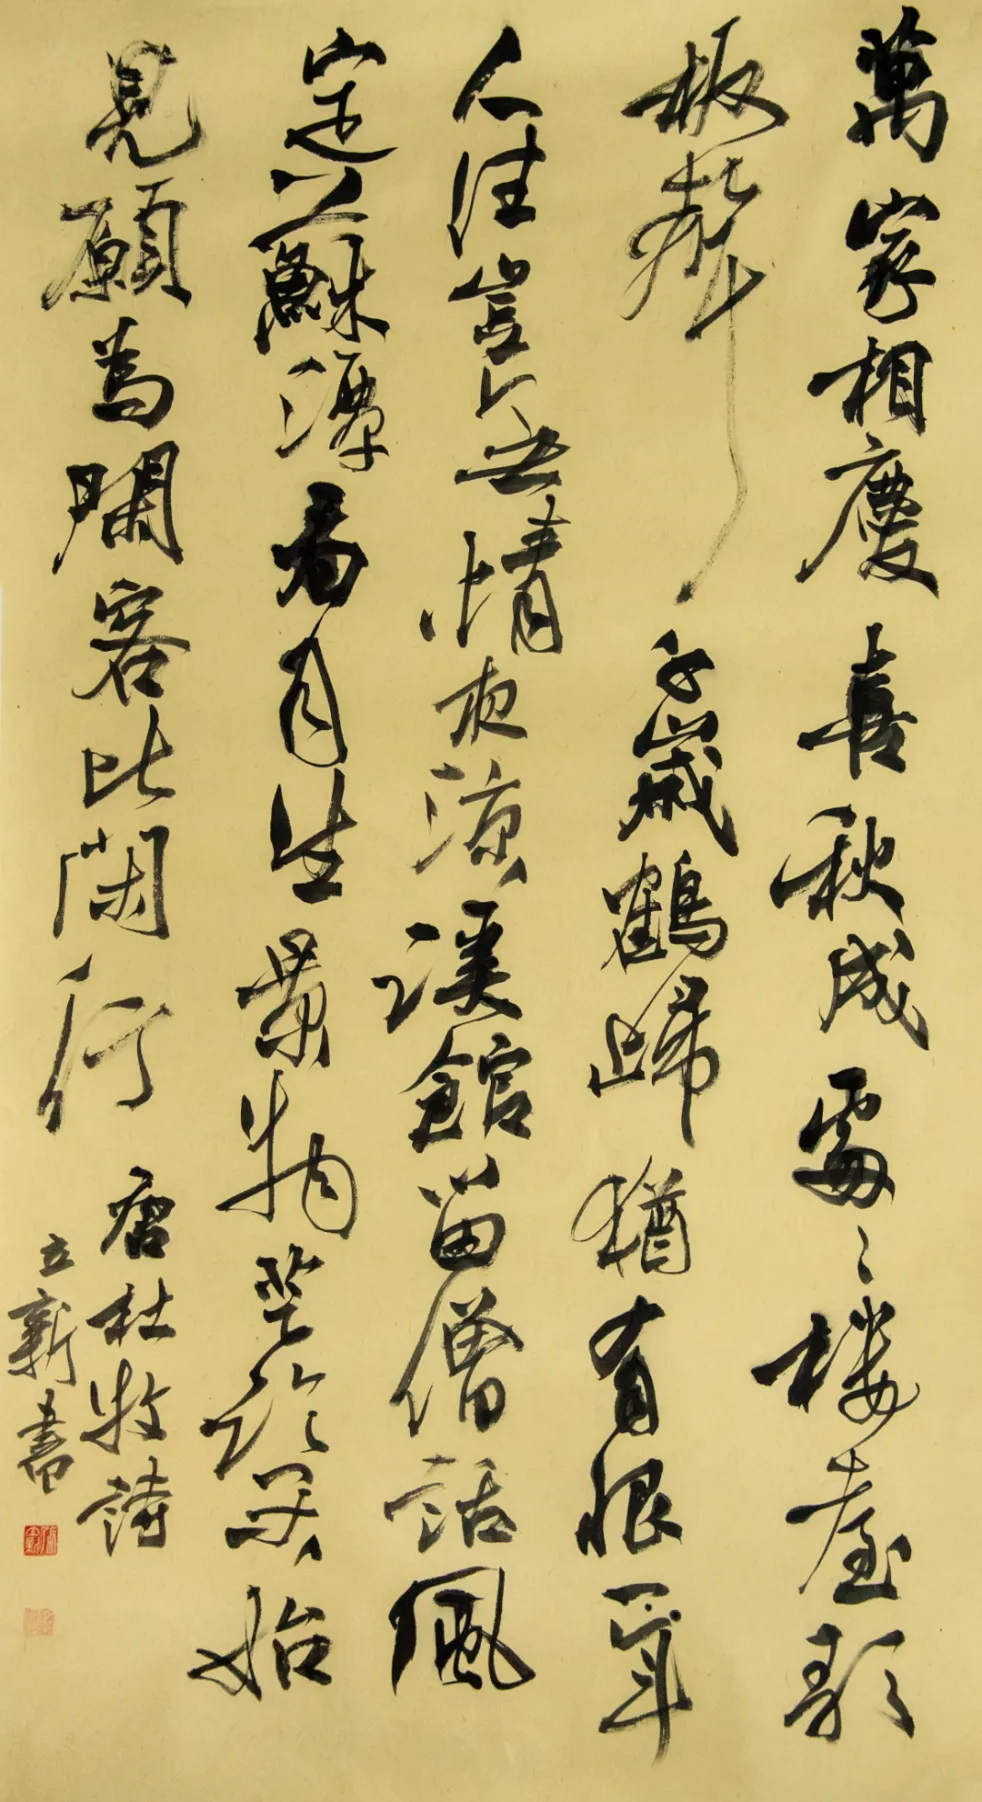 萬家相慶喜秋成處〻楼臺歌
板聲千歲鶴歸猶有恨一年
人住豈無情夜涼溪館留僧話風
定蘇潭看月生景物登臨閑始
見願為閑客此閑行 唐杜牧詩
立新書